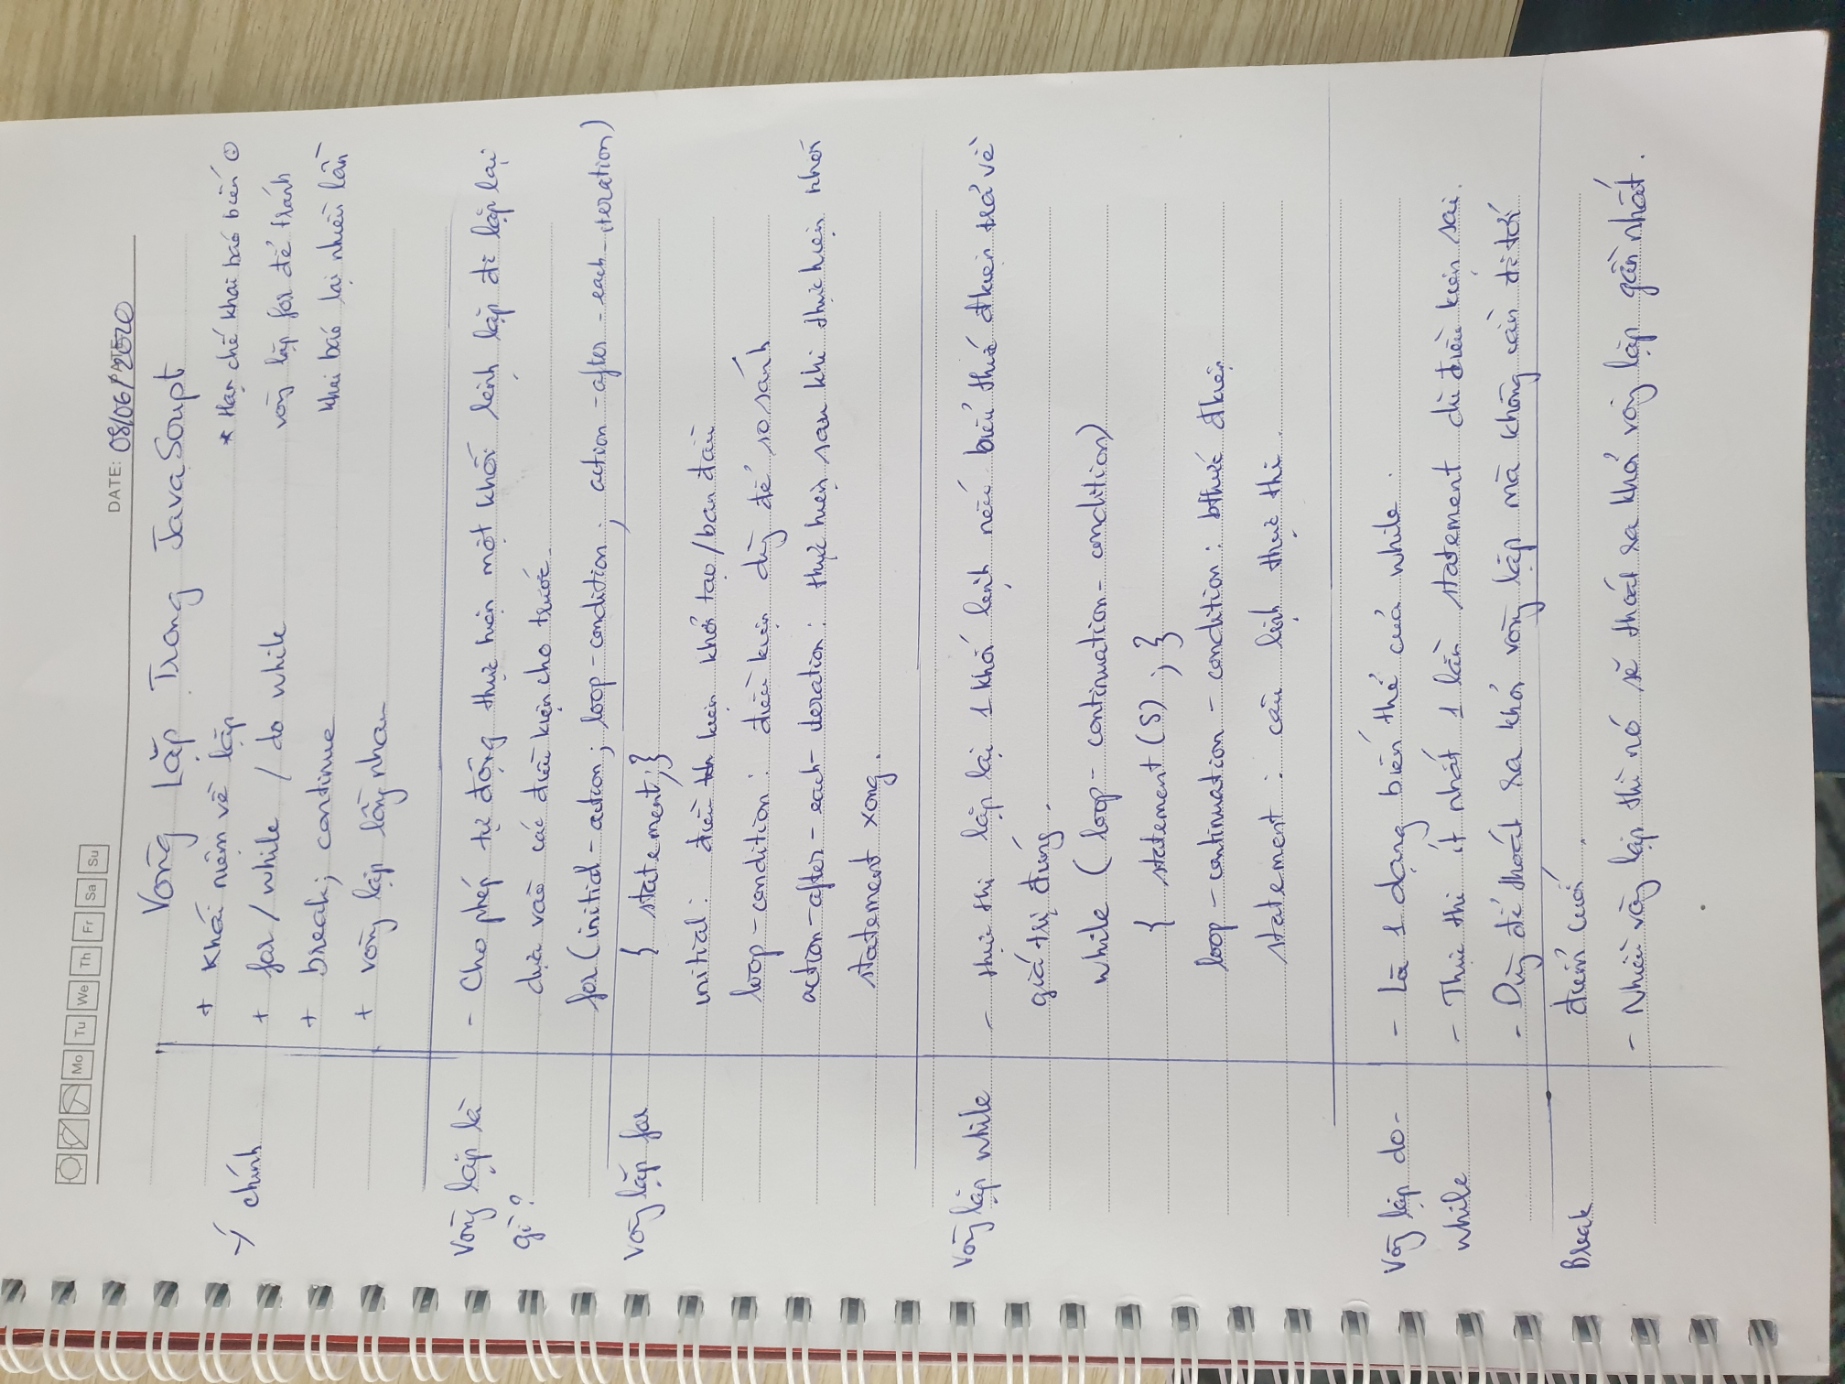 Mo Tu We Th Fr Sa Su
DATE: 08/06/2020
Vòng Lặp Trong JavaScript
Ý chính
+ Khái niệm về lặp
+ for / while / do while
+ break; continue
+ vòng lặp lồng nhau
* Hạn chế khai báo biến ở
vòng lặp for để tránh
khai báo lại nhiều lần
Vòng lặp là
gì?
- Cho phép tự động thực hiện một khối lệnh lặp đi lặp lại
dựa vào các điều kiện cho trước.
for (initial-action; loop-condition; action-after-each-iteration)
Vòng lặp for
{ statement; }
initial: điều kiện khởi tạo/ban đầu
loop-condition: điều kiện dùng để so sánh
action-after-each-iteration: thực hiện sau khi thực hiện khối
statement xong.
Vòng lặp while
- thực thi lặp lại 1 khối lệnh nếu biểu thức đkiện trả về
giá trị đúng.
while (loop-continuation-condition)
{ statement(S); }
loop-continuation-condition: bthức đkiện
statement: câu lệnh thực thi.
Vòng lặp do-
while
- Là 1 dạng biến thể của while.
- Thực thi ít nhất 1 lần statement dù điều kiện sai.
- Dùng để thoát ra khỏi vòng lặp mà không cần đi tới
Break
điểm cuối.
- Nhiều vòng lặp thì nó sẽ thoát ra khỏi vòng lặp gần nhất.